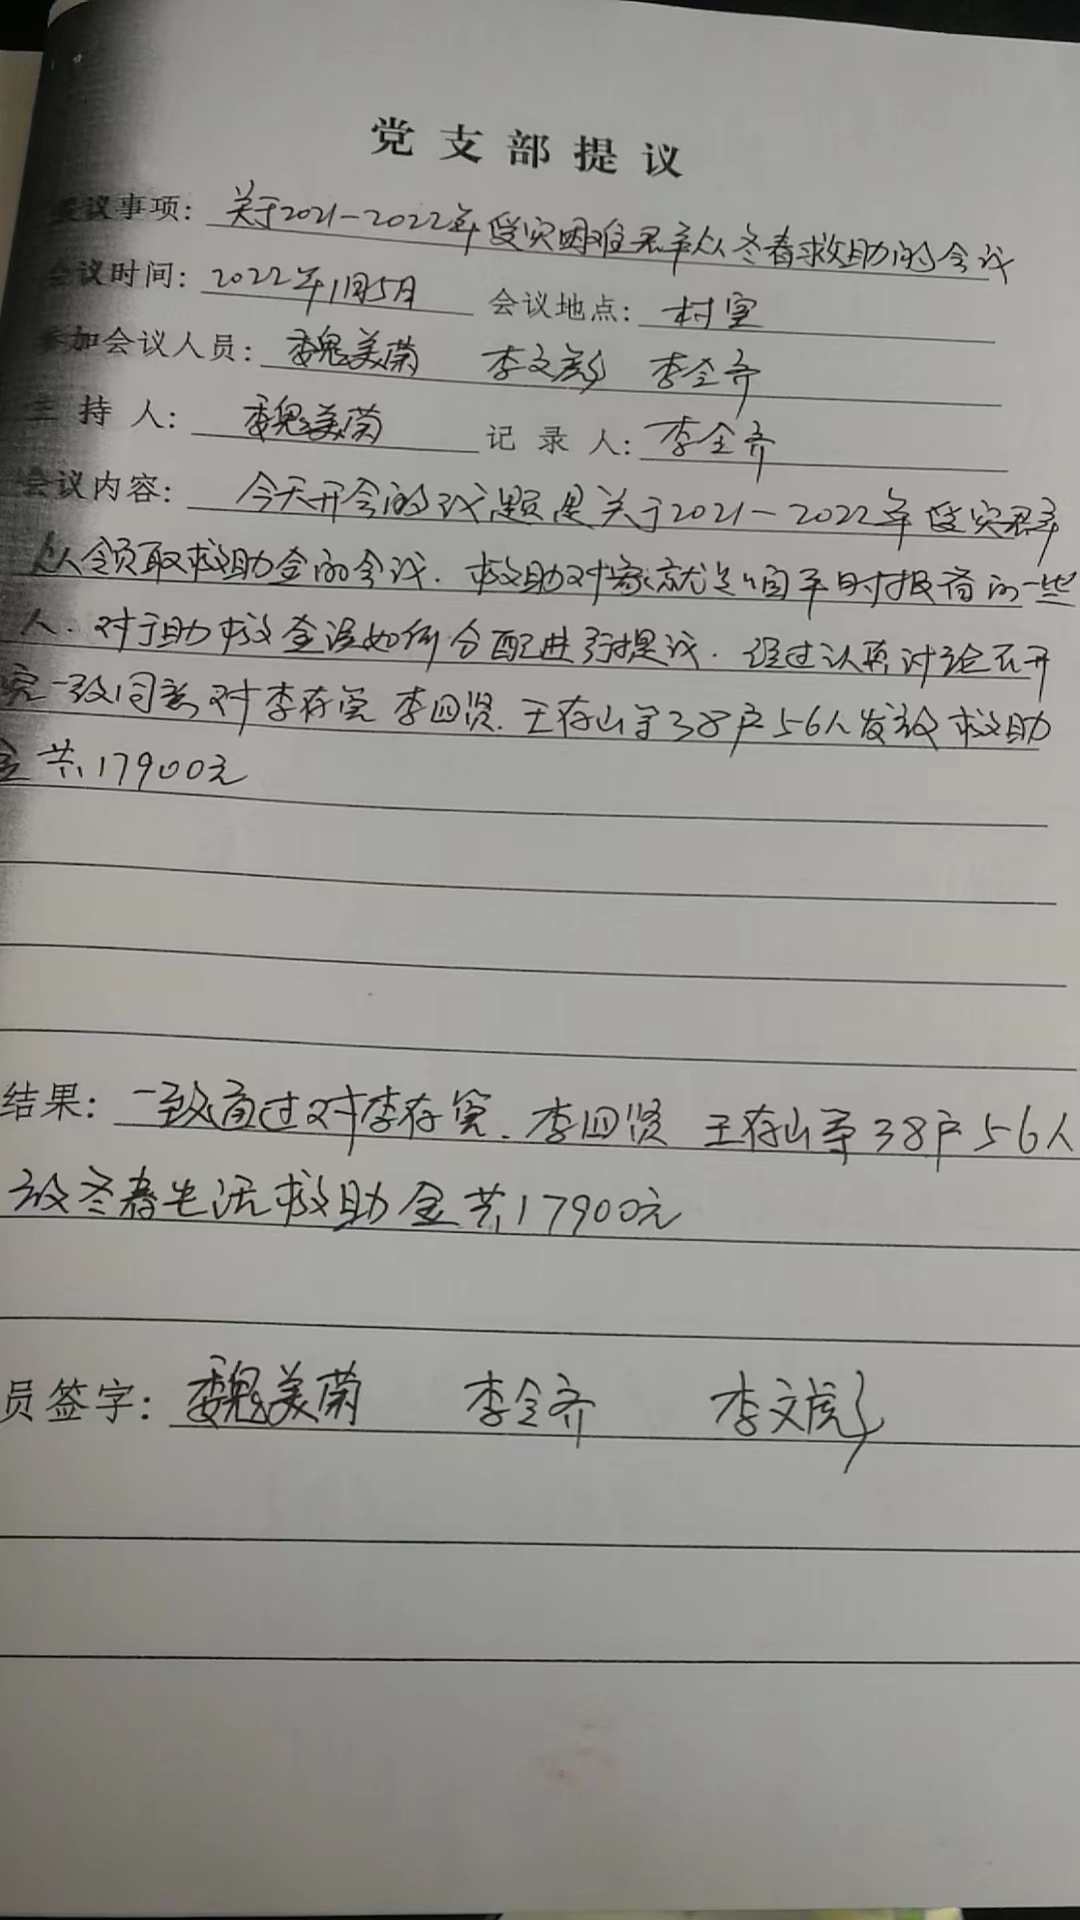 党支部提议
议事项：关于2021-2022年受灾困难群众冬春救助的会议
会议时间：2022年1月5日 会议地点：村室
参加会议人员：魏美菊 李文彪 李全齐
主持人：魏美菊 记录人：李全齐
会议内容：今天开会的议题是关于2021-2022年受灾群
众领取救助金的会议.救助对象就是咱平时报的一些
人.对于助救金该如何分配进行提议.经过认真讨论研
究一致同意对李存 李四贤.王存山等38户56人发放救助
金共17900元
结果：一致通过对李存 、李四贤 王存山等38户56人
放冬春生活救助金共17900元
员签字：魏美菊 李全齐 李文彪